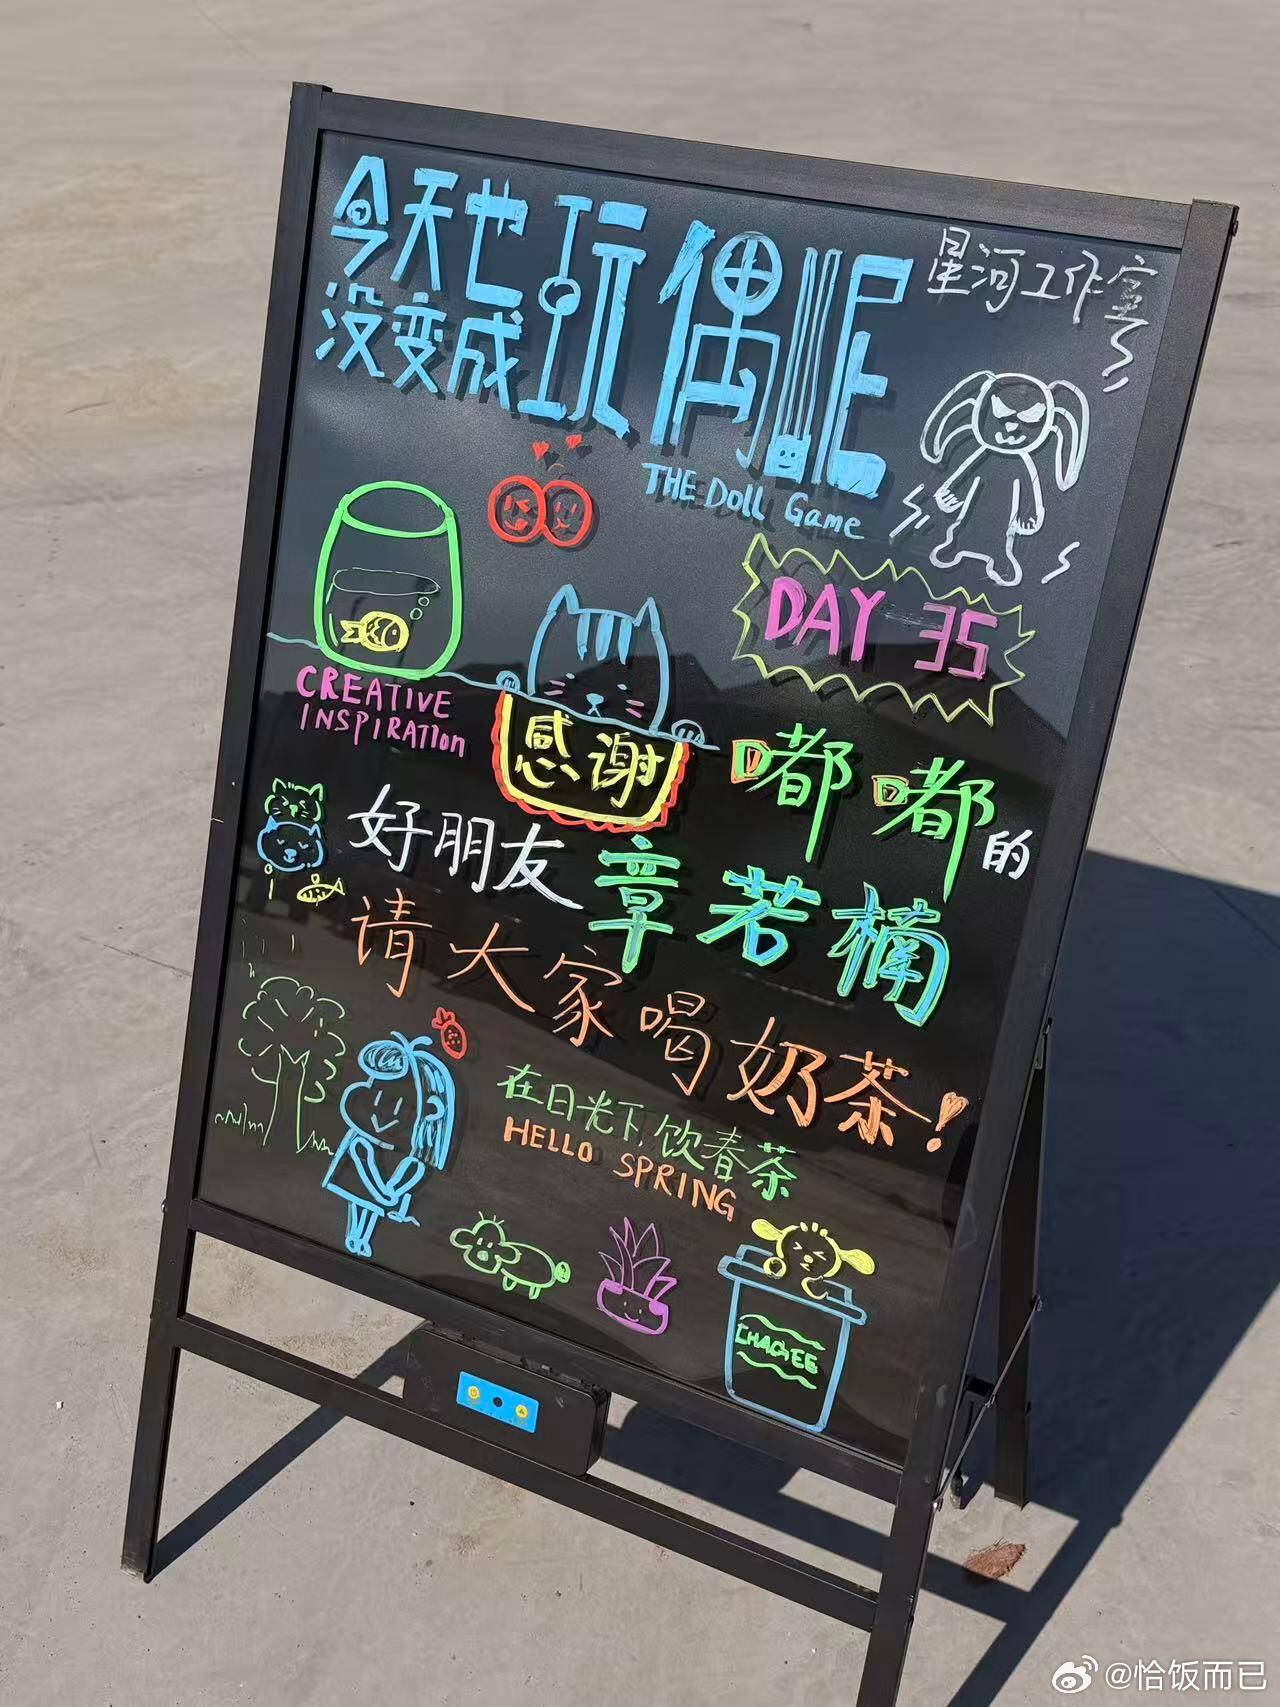 今天也
没变成
玩偶呢
星河工作室
THE DOLL Game
DAY 35
CREATIVE
INSPIRATION
感谢
嘟嘟的
好朋友章若楠
请大家喝奶茶!
在日光下,饮春茶
HELLO SPRING
CHAGEE
@恰饭而已